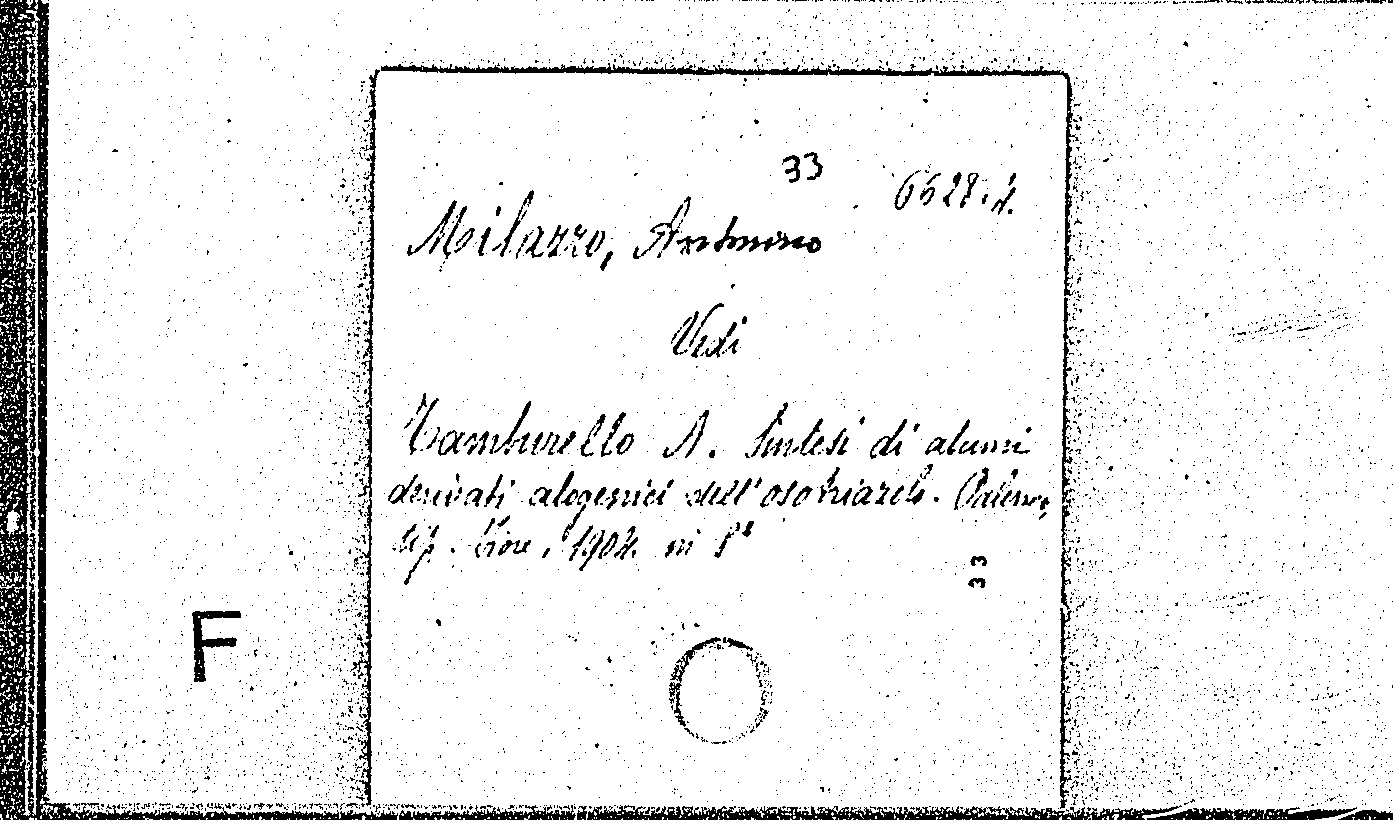 33
6628.4.
Milazzo, Antonino
Vedi
Tamburello A. Sintesi di alcuni
derivati alogenici dell'osotriazolo. Palermo,
tip. Fiore, 1904. in 8º
33
F